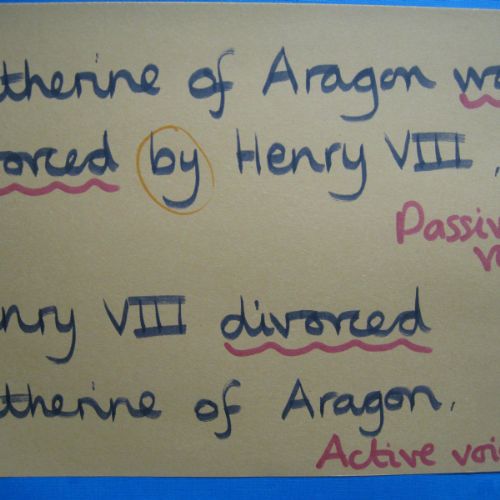 therine of Aragon wa
orced by Henry VIII.
Passiv
v
nry VIII divorced
therine of Aragon.
Active voi